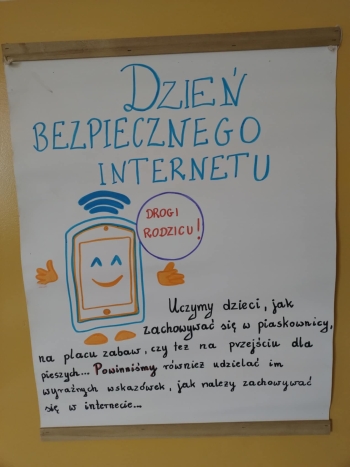 DZIEŃ
BEZPIECZNEGO
INTERNETU
DROGI
RODZICU!
Uczymy dzieci, jak
zachowywać się w piaskownicy,
na placu zabaw, czy też na przejściu dla
pieszych... Powinniśmy również udzielać im
wyraźnych wskazówek, jak należy zachowywać
się w internecie...